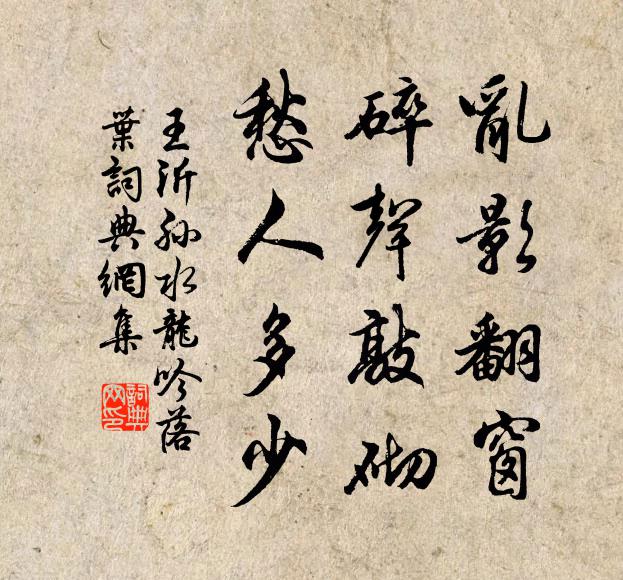 亂影翻窗
碎聲敲砌
愁人多少
王沂孫水龍吟落
葉詞典網集
詞典
网印